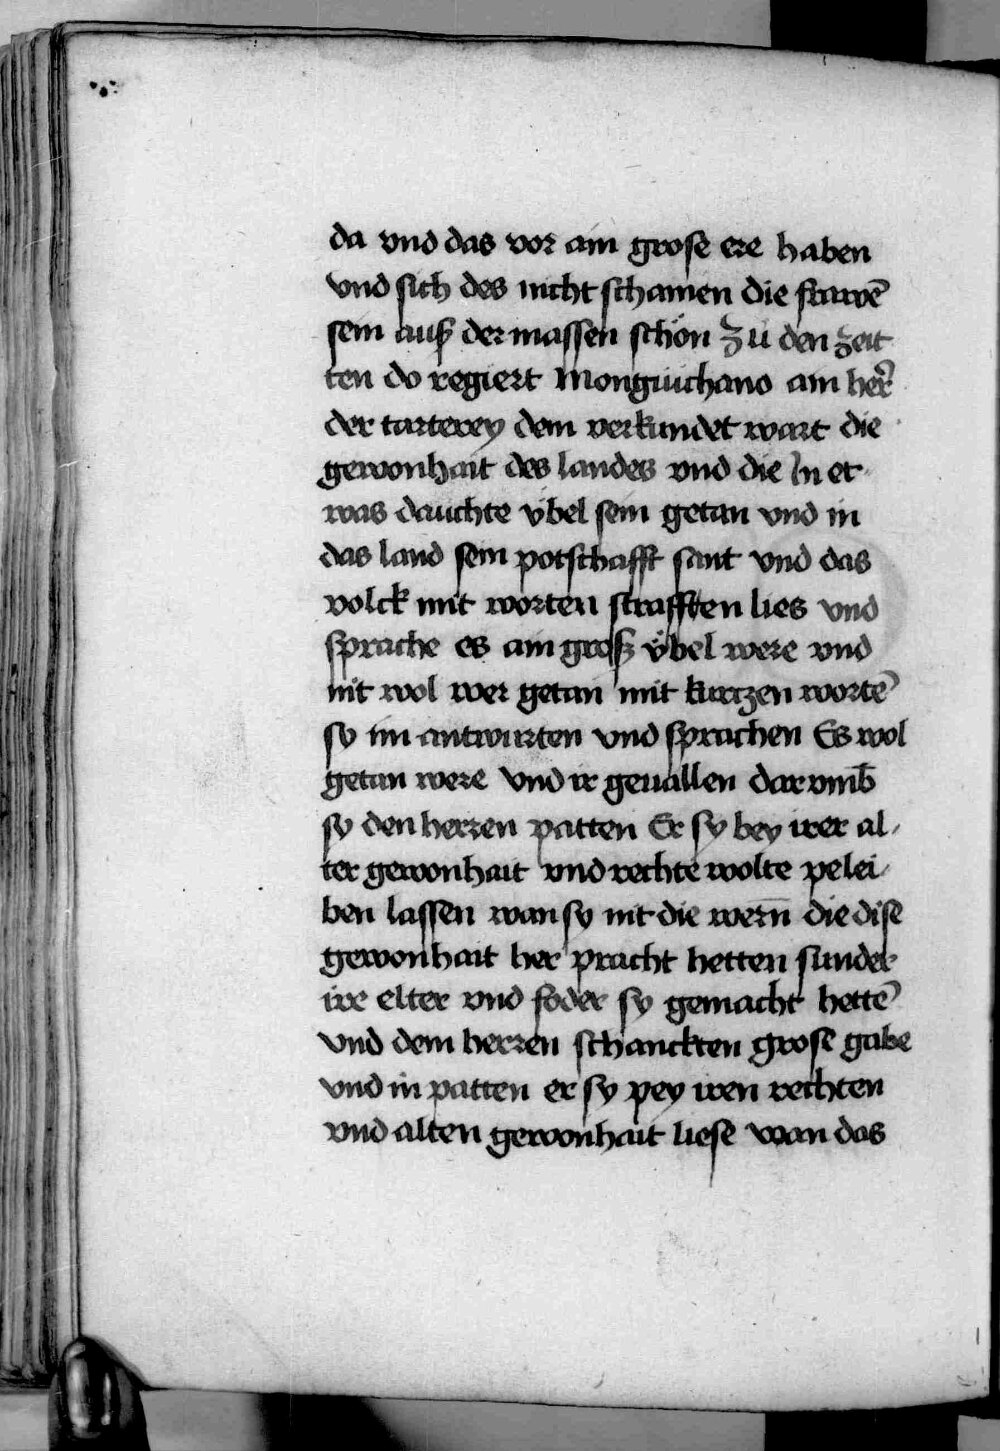 da vnd das vor ain grose ere haben
vnd sich des nicht schamen die frawē
sein auß der massen schön Zu den zeit
ten do regiert Monguichano ain her̄
der tarterey dem verkundet wart die
gewonhait des landes vnd die In et
was dauchte v̈bel sein getan vnd in
das land sein potschafft sant vnd das
volck mit worten strafften lies vnd
sprache es ain groß v̈bel were vnd
nit wol wer getan mit kurtzen wortē
sy im antwurten vnd sprachen Es wol
getan were vnd ir geuallen dar vmb̄
sy den herren patten Er sy bey irer al⸗
ter gewonhait vnd rechte wolte pelei⸗
ben lassen wan sy nit die wern̄ die dise
gewonhait her pracht hetten sunder
ire elter vnd foder sy gemacht hettē
vnd dem herren schanckten grose gabe
vnd in patten er sy pey iren rechten
vnd alten gewonhait liese wan das